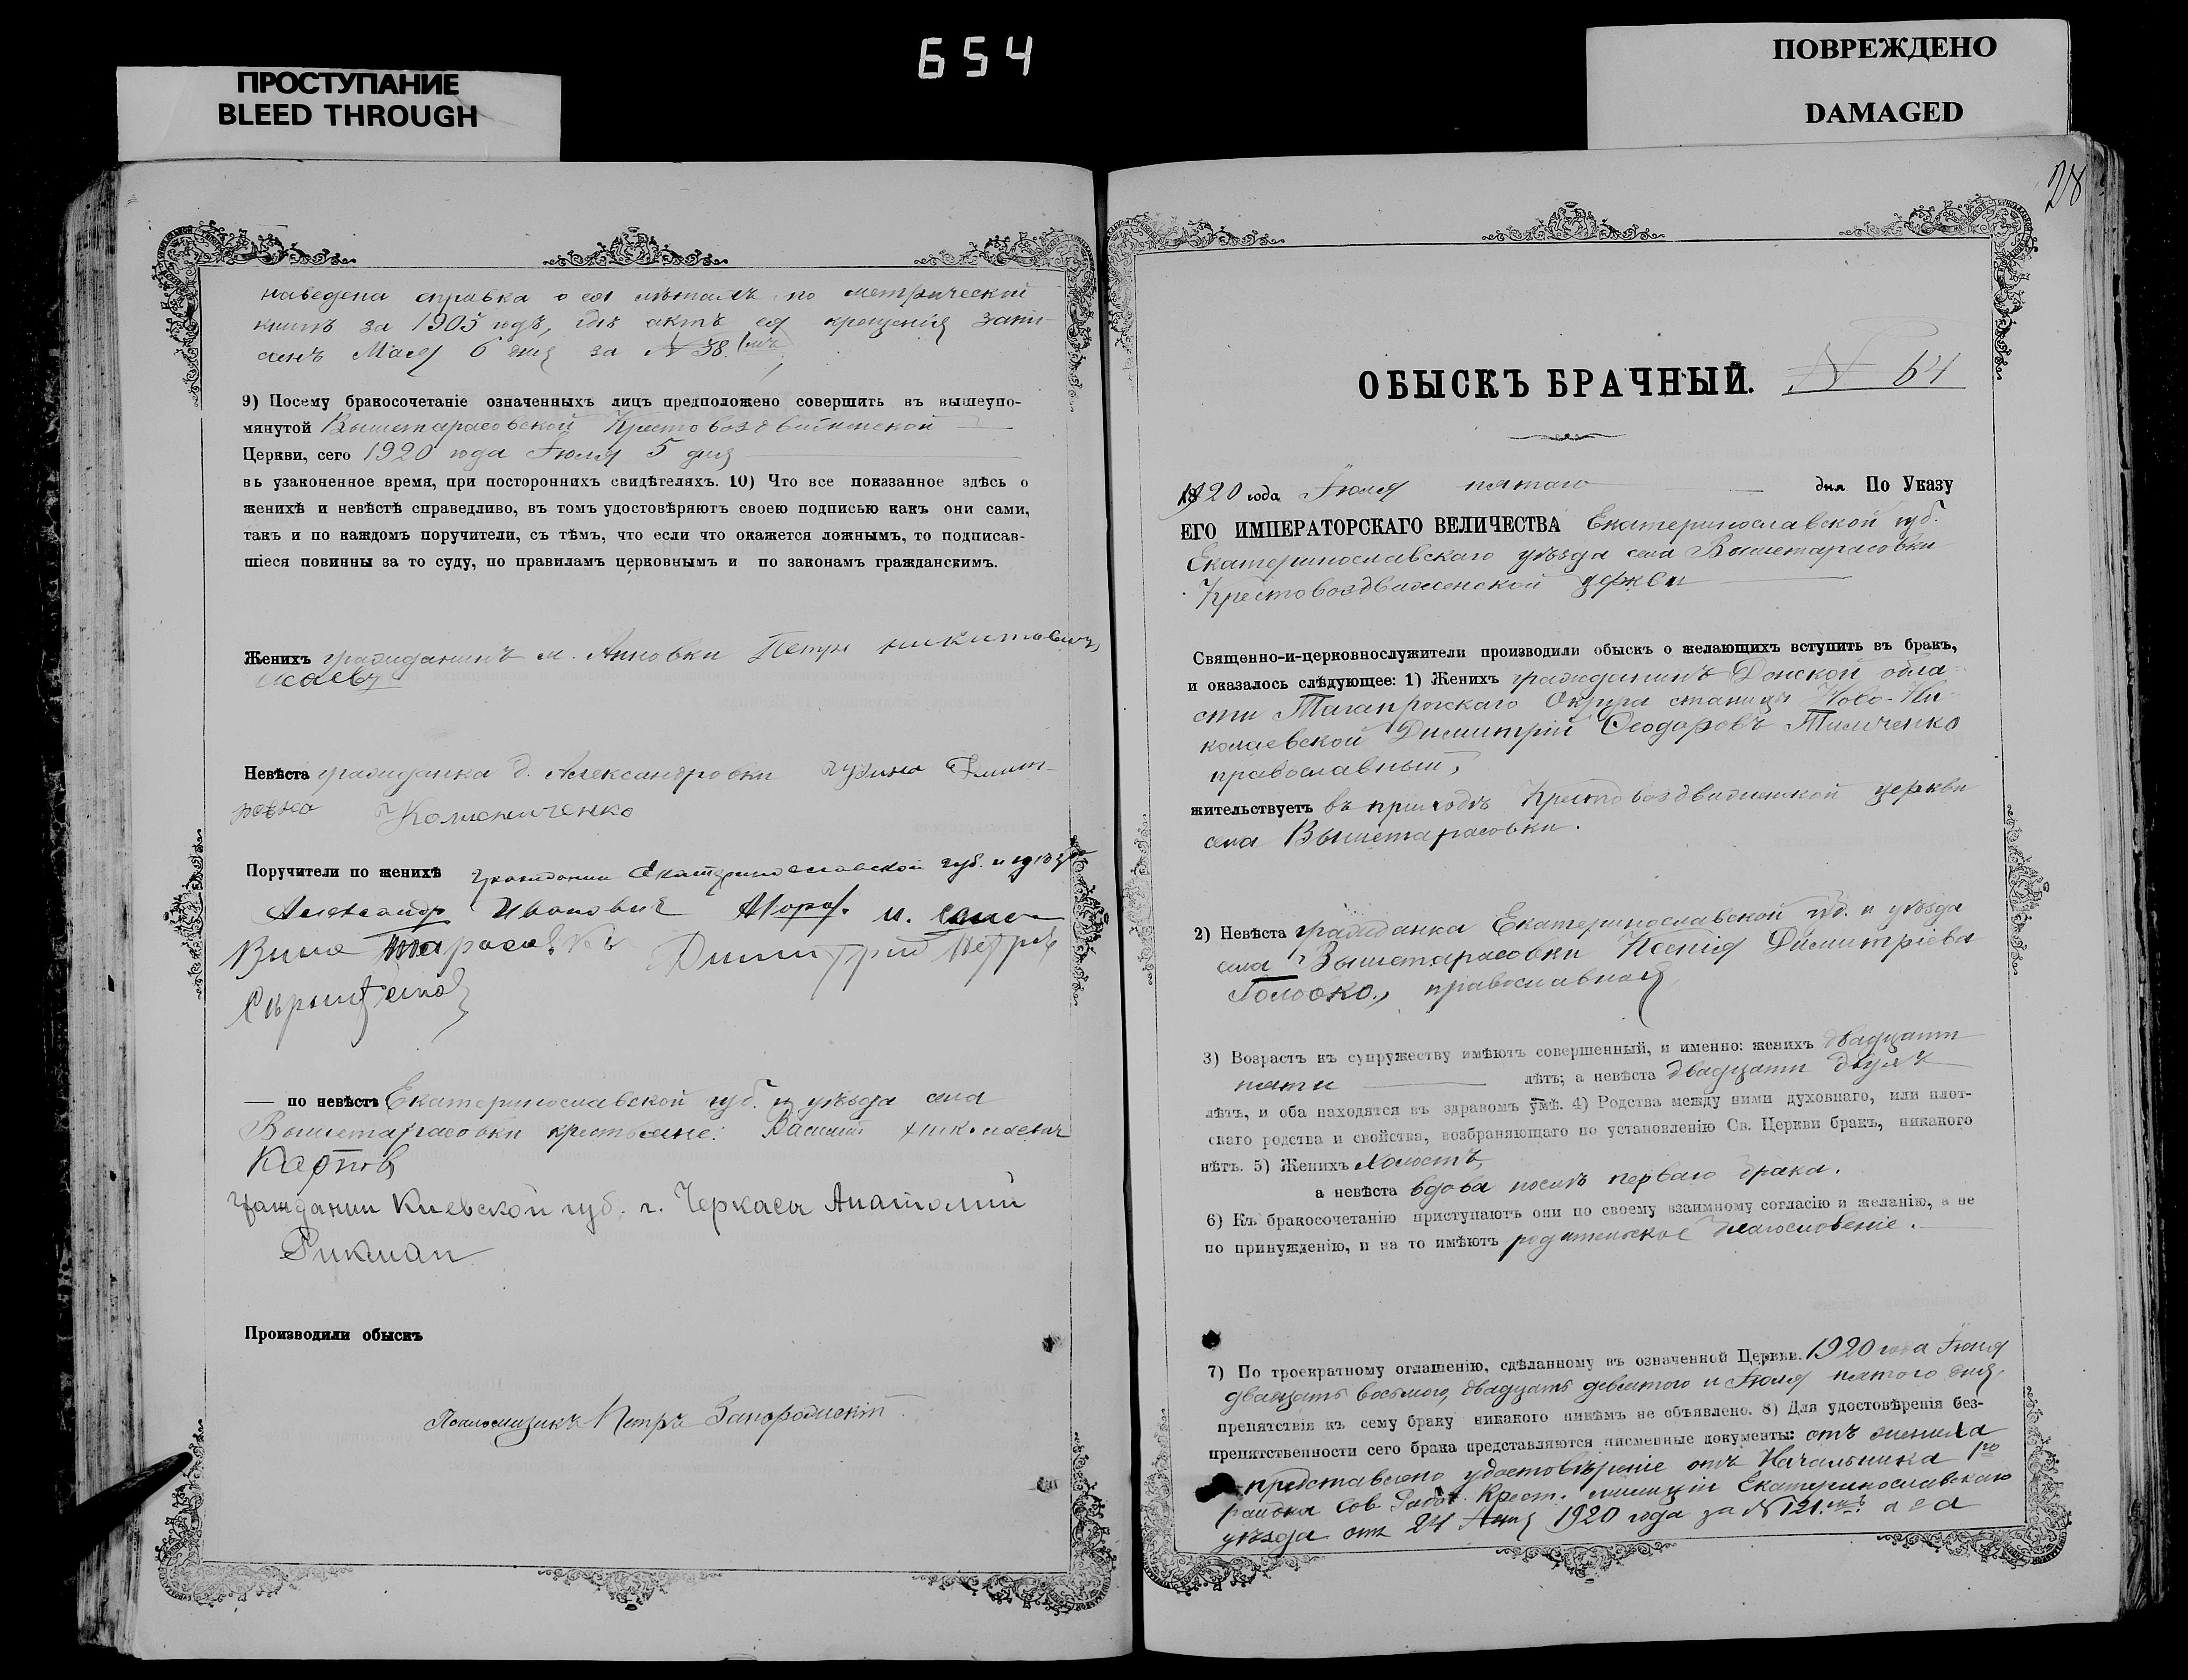 654
ПРОСТУПАНИЕ
BLEED THROUGH
ПОВРЕЖДЕНО
DAMAGED
наведена справка о ея лѣтахъ по метрической
книгѣ за 1905 годъ, гдѣ актъ ея крещенія запи-
санъ Мая 6 дня за № 38.
9) Посему бракосочетаніе означенныхъ лицъ предположено совершить въ вышеупо-
мянутой Вышетарасовской Крестовоздвиженской
Церкви, сего 1920 года Іюля 5 дня
въ узаконенное время, при постороннихъ свидѣтеляхъ. 10) Что все показанное здѣсь о
женихѣ и невѣстѣ справедливо, въ томъ удостовѣряютъ своею подписью какъ они сами,
такъ и по каждомъ поручители, съ тѣмъ, что если что окажется ложнымъ, то подписав-
шіеся повинны за то суду, по правиламъ церковнымъ и по законамъ гражданскимъ.
Женихъ гражданинъ м. Анновки Петръ Никитовичъ
Исаевъ
Невѣста гражданка д. Александровки
Коломниченко
Поручители по женихѣ граждании Екатеринославской губ. и уѣзда
Александр Иванович м. село
Выше Тарасовкъ Димитрий Петров
— по невѣстѣ Екатеринославской губ. и уѣзда села
Вышетарасовки крестьяне: Василий Николаевич
Карпов
граждании Киевской губ. г. Черкасы Анатолий
Рикман
Производили обыскъ
Псаломщикъ Петръ Запорожскій
28
ОБЫСКЪ БРАЧНЫЙ. № 64
1920 года Іюля пятаго дня По Указу
ЕГО ИМПЕРАТОРСКАГО ВЕЛИЧЕСТВА Екатеринославской губ.
Екатеринославскаго уѣзда села Вышетарасовки
Крестовоздвиженской церкви
Священно-и-церковнослужители производили обыскъ о желающихъ вступить въ бракъ,
и оказалось слѣдующее: 1) Женихъ гражданинъ Донской обла-
сти Таганрогскаго Округа станицы Ново-Ни-
колаевской Димитрій Ѳеодоровъ Тимченко
православный,
жительствуетъ въ приходѣ Крестовоздвиженской церкви
села Вышетарасовки.
2) Невѣста гражданка Екатеринославской губ. и уѣзда
села Вышетарасовки Ксенія Димитріева
православная
3) Возрастъ къ супружеству имѣютъ совершенный, и именно: женихъ двадцати
пяти лѣтъ; а невѣста двадцати двухъ
лѣтъ, и оба находятся въ здравомъ умѣ. 4) Родства между ними духовнаго, или плот-
скаго родства и свойства, возбраняющаго по установленію Св. Церкви бракъ, никакого
нѣтъ. 5) Женихъ холостъ,
а невѣста вдова послѣ перваго брака.
6) Къ бракосочетанію приступаютъ они по своему взаимному согласію и желанію, а не
по принужденію, и на то имѣютъ родительское благословеніе.
7) По троекратному оглашенію, сдѣланному въ означенной Церкви. 1920 года Іюня
двадцать восьмого, двадцать девятого и Іюля пятого дня,
препятствія къ сему браку никакого никѣмъ не объявлено. 8) Для удостовѣренія без-
препятственности сего брака представляются писменные документы: отъ жениха
представлено удостовѣреніе отъ Начальника 1го
района Сов. Рабоч. Крест. милиціи Екатеринославскаго
уѣзда отъ 24 1920 года за № 121.